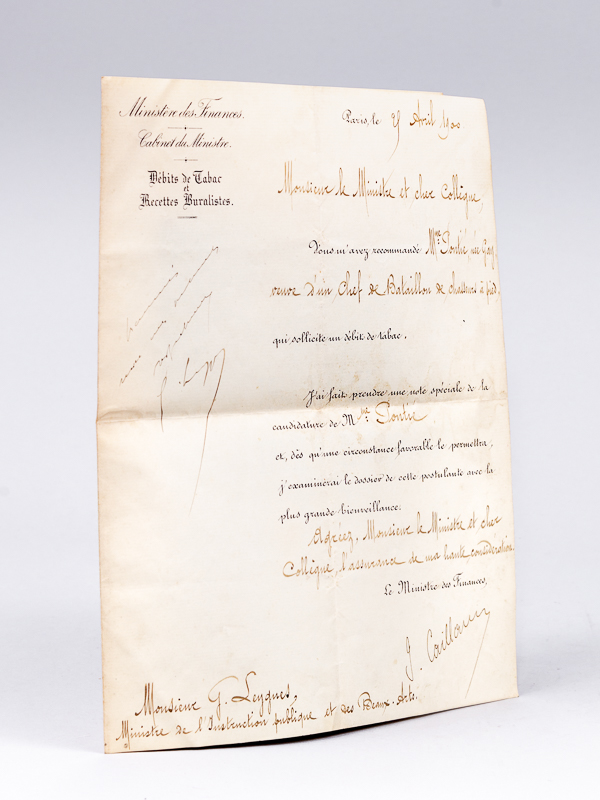 Ministère des Finances.
Cabinet du Ministre.
Débits de Tabac
et
Recettes Buralistes.
Paris, le 25 Avril 1900
Monsieur le Ministre et cher Collègue,
Vous m'avez recommandé Mme Pontié née Gay,
veuve d'un Chef de Bataillon de chasseurs à pied,
qui sollicite un débit de tabac.
J'ai fait prendre une note spéciale de la
candidature de Mme Pontié
et, dès qu'une circonstance favorable le permettra,
j'examinerai le dossier de cette postulante avec la
plus grande bienveillance.
Agréez, Monsieur le Ministre et cher
Collègue, l'assurance de ma haute considération.
Le Ministre des Finances,
J. Caillaux
Monsieur G. Leygues,
Ministre de l'Instruction publique et des Beaux-Arts.